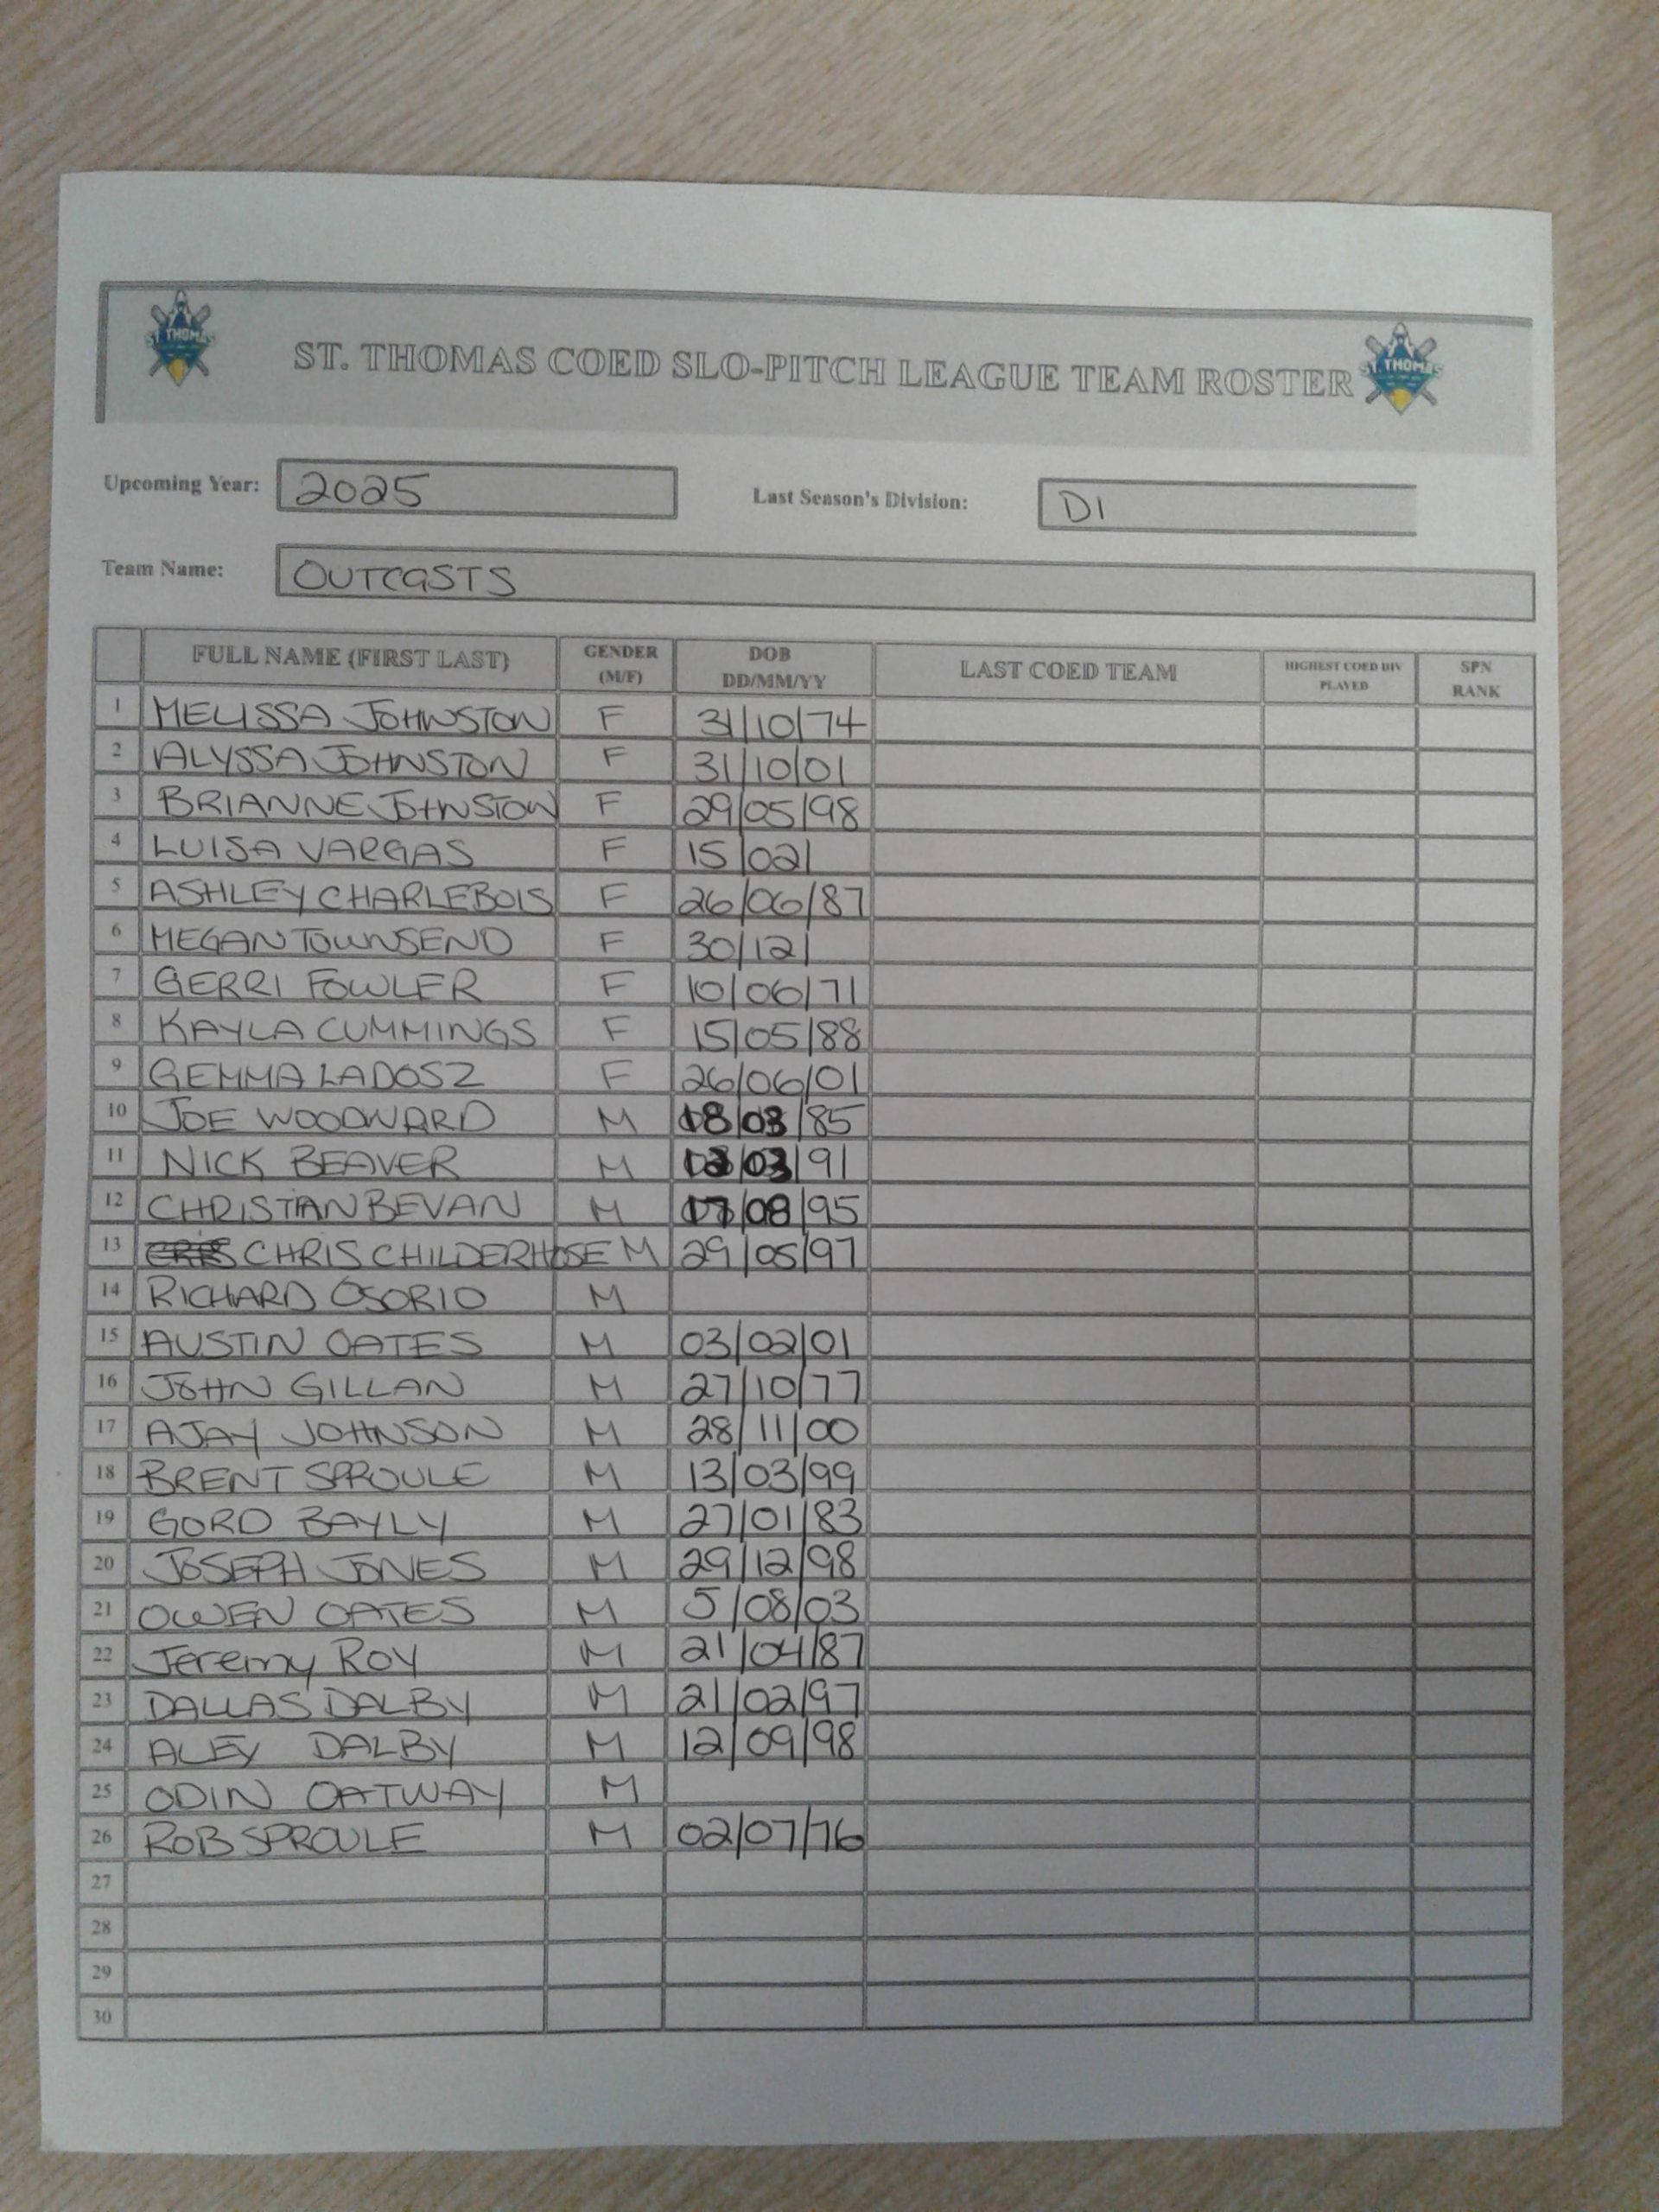 ST. THOMAS
ST. THOMAS COED SLO-PITCH LEAGUE TEAM ROSTER
ST. THOMAS
Upcoming Year: 2025 Last Season's Division: D1
Team Name: OUTCASTS
FULL NAME (FIRST LAST) GENDER (M/F) DOB DD/MM/YY LAST COED TEAM HIGHEST COED DIV PLAYED SPN RANK
1 MELISSA JOHNSTON F 31/10/74
2 ALYSSA JOHNSTON F 31/10/01
3 BRIANNE JOHNSTON F 29/05/98
4 LUISA VARGAS F 15/02/
5 ASHLEY CHARLEBOIS F 26/06/87
6 MEGAN TOWNSEND F 30/12/
7 GERRI FOWLER F 10/06/71
8 KAYLA CUMMINGS F 15/05/88
9 GEMMA LADOSZ F 26/06/01
10 JOE WOODWARD M 18/03/85
11 NICK BEAVER M /03/91
12 CHRISTIAN BEVAN M 17/08/95
13 CHRIS CHILDERHOSE M 29/05/97
14 RICHARD OSORIO M
15 AUSTIN OATES M 03/02/01
16 JOHN GILLAN M 27/10/77
17 AJAY JOHNSON M 28/11/00
18 BRENT SPROULE M 13/03/99
19 GORD BAYLY M 27/01/83
20 JOSEPH JONES M 29/12/98
21 OWEN OATES M 5/08/03
22 Jeremy ROY M 21/04/87
23 DALLAS DALBY M 21/02/97
24 DALBY M 12/09/98
25 ODIN OATWAY M
26 ROB SPROULE M 02/07/76
27
28
29
30